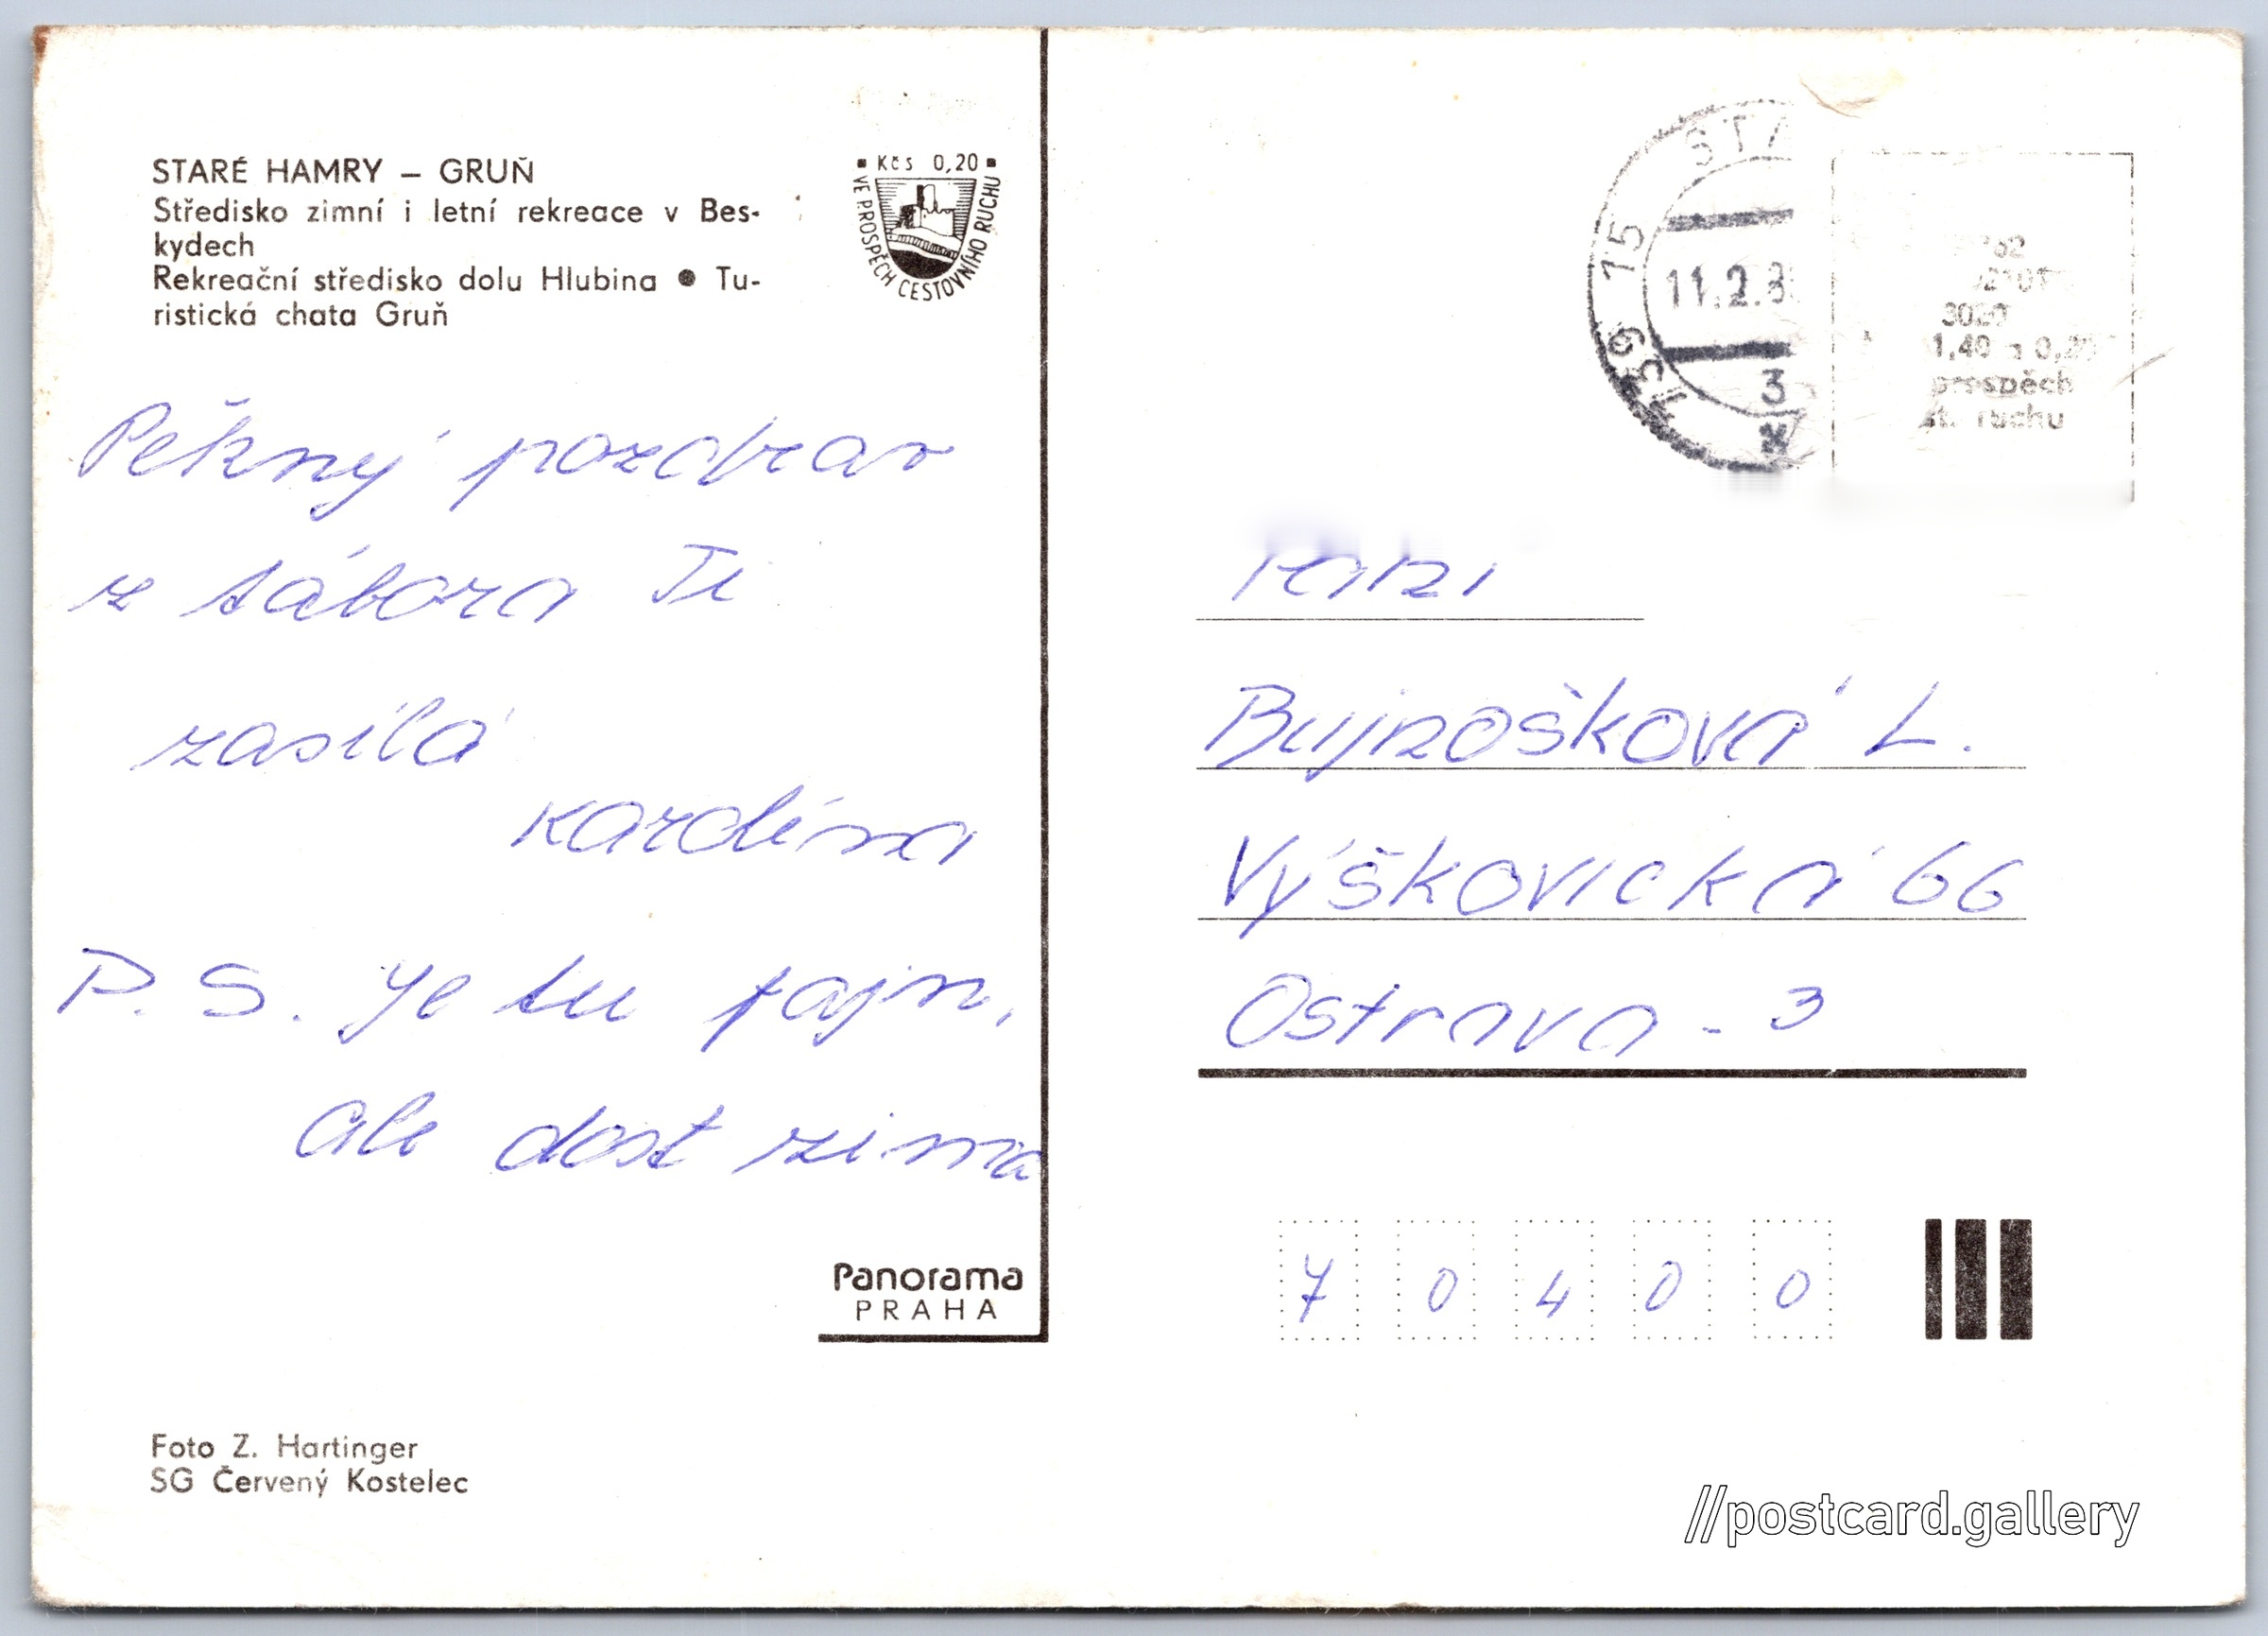 STARÉ HAMRY – GRUŇ
Středisko zimní i letní rekreace v Bes-
kydech
Rekreační středisko dolu Hlubina ● Tu-
ristická chata Gruň
Kčs 0,20
VE PROSPĚCH CESTOVNÍHO RUCHU
Pěkný pozdrav
z tábora Ti
zasílá
Karolína
P.S. Je tu fajn,
ale dost zima
Panorama
PRAHA
Foto Z. Hartinger
SG Červený Kostelec
739 15
11.2.8
3
1,40 0,20
prospěch
st. ruchu
Bujnošková L.
Výškovická 66
Ostrava - 3
7 0 4 0 0
//postcard.gallery